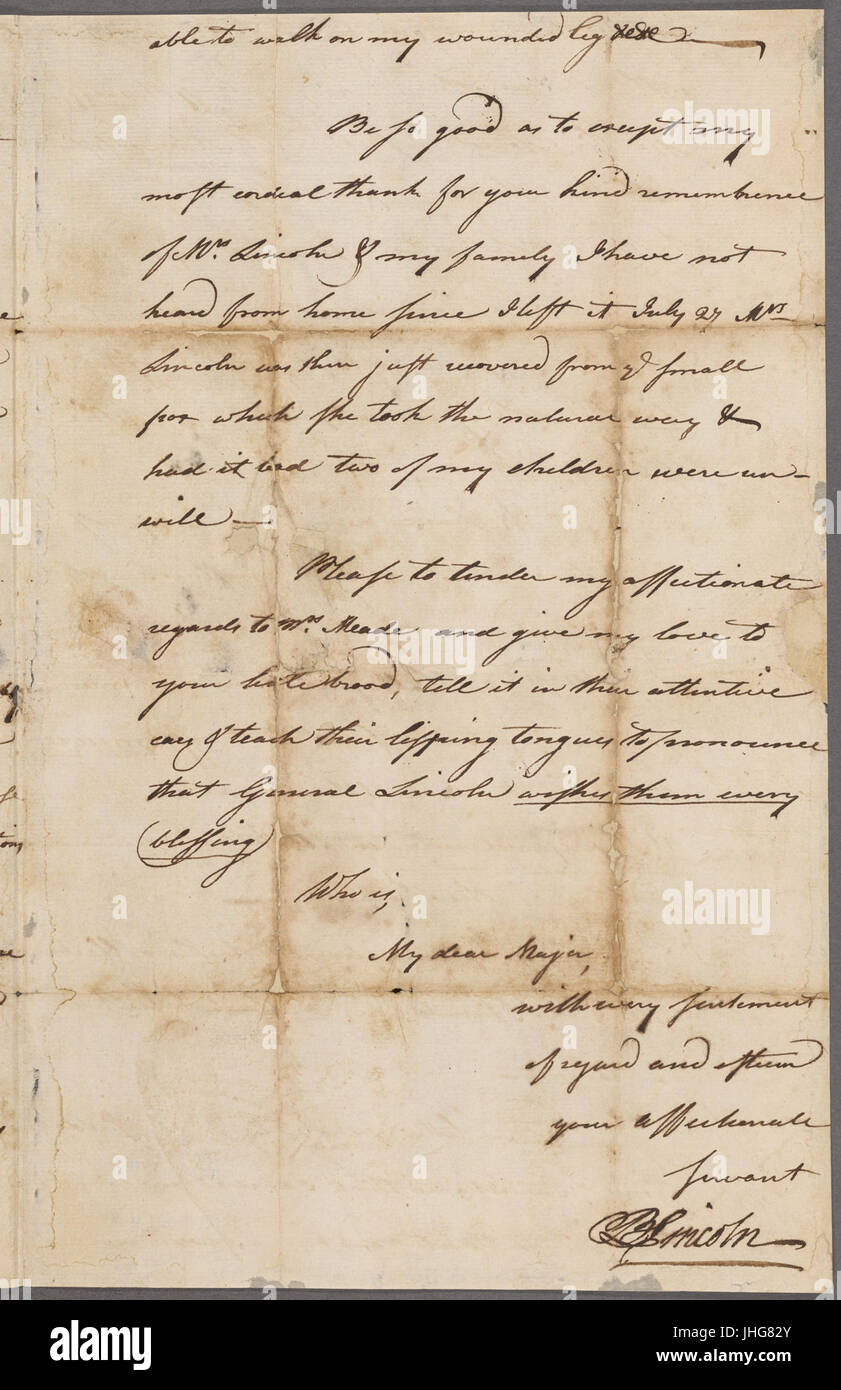 able to walk on my wounded leg &c&c
Be so good as to except my
most cordial thank for your kind remembrence
of Mrs. Lincoln & my family I have not
heard from home since I left it July 27 Mrs
Lincoln was then just recovered from ye small
pox which she took the natural way &
had it bad two of my children were un-
will
Please to tender my affectionate
regards to Mrs. Meade and give my love to
your brood, tell it in their attentive
ears & teach their lisping tongues to pronounce
that General Lincoln wishes them every
(blessing)
Who is,
My dear Major,
with every sentement
of regard and esteem
your affectionate
servant
BLincoln
a alamy stock photo
alamy
Image ID: JHG82Y
www.alamy.com